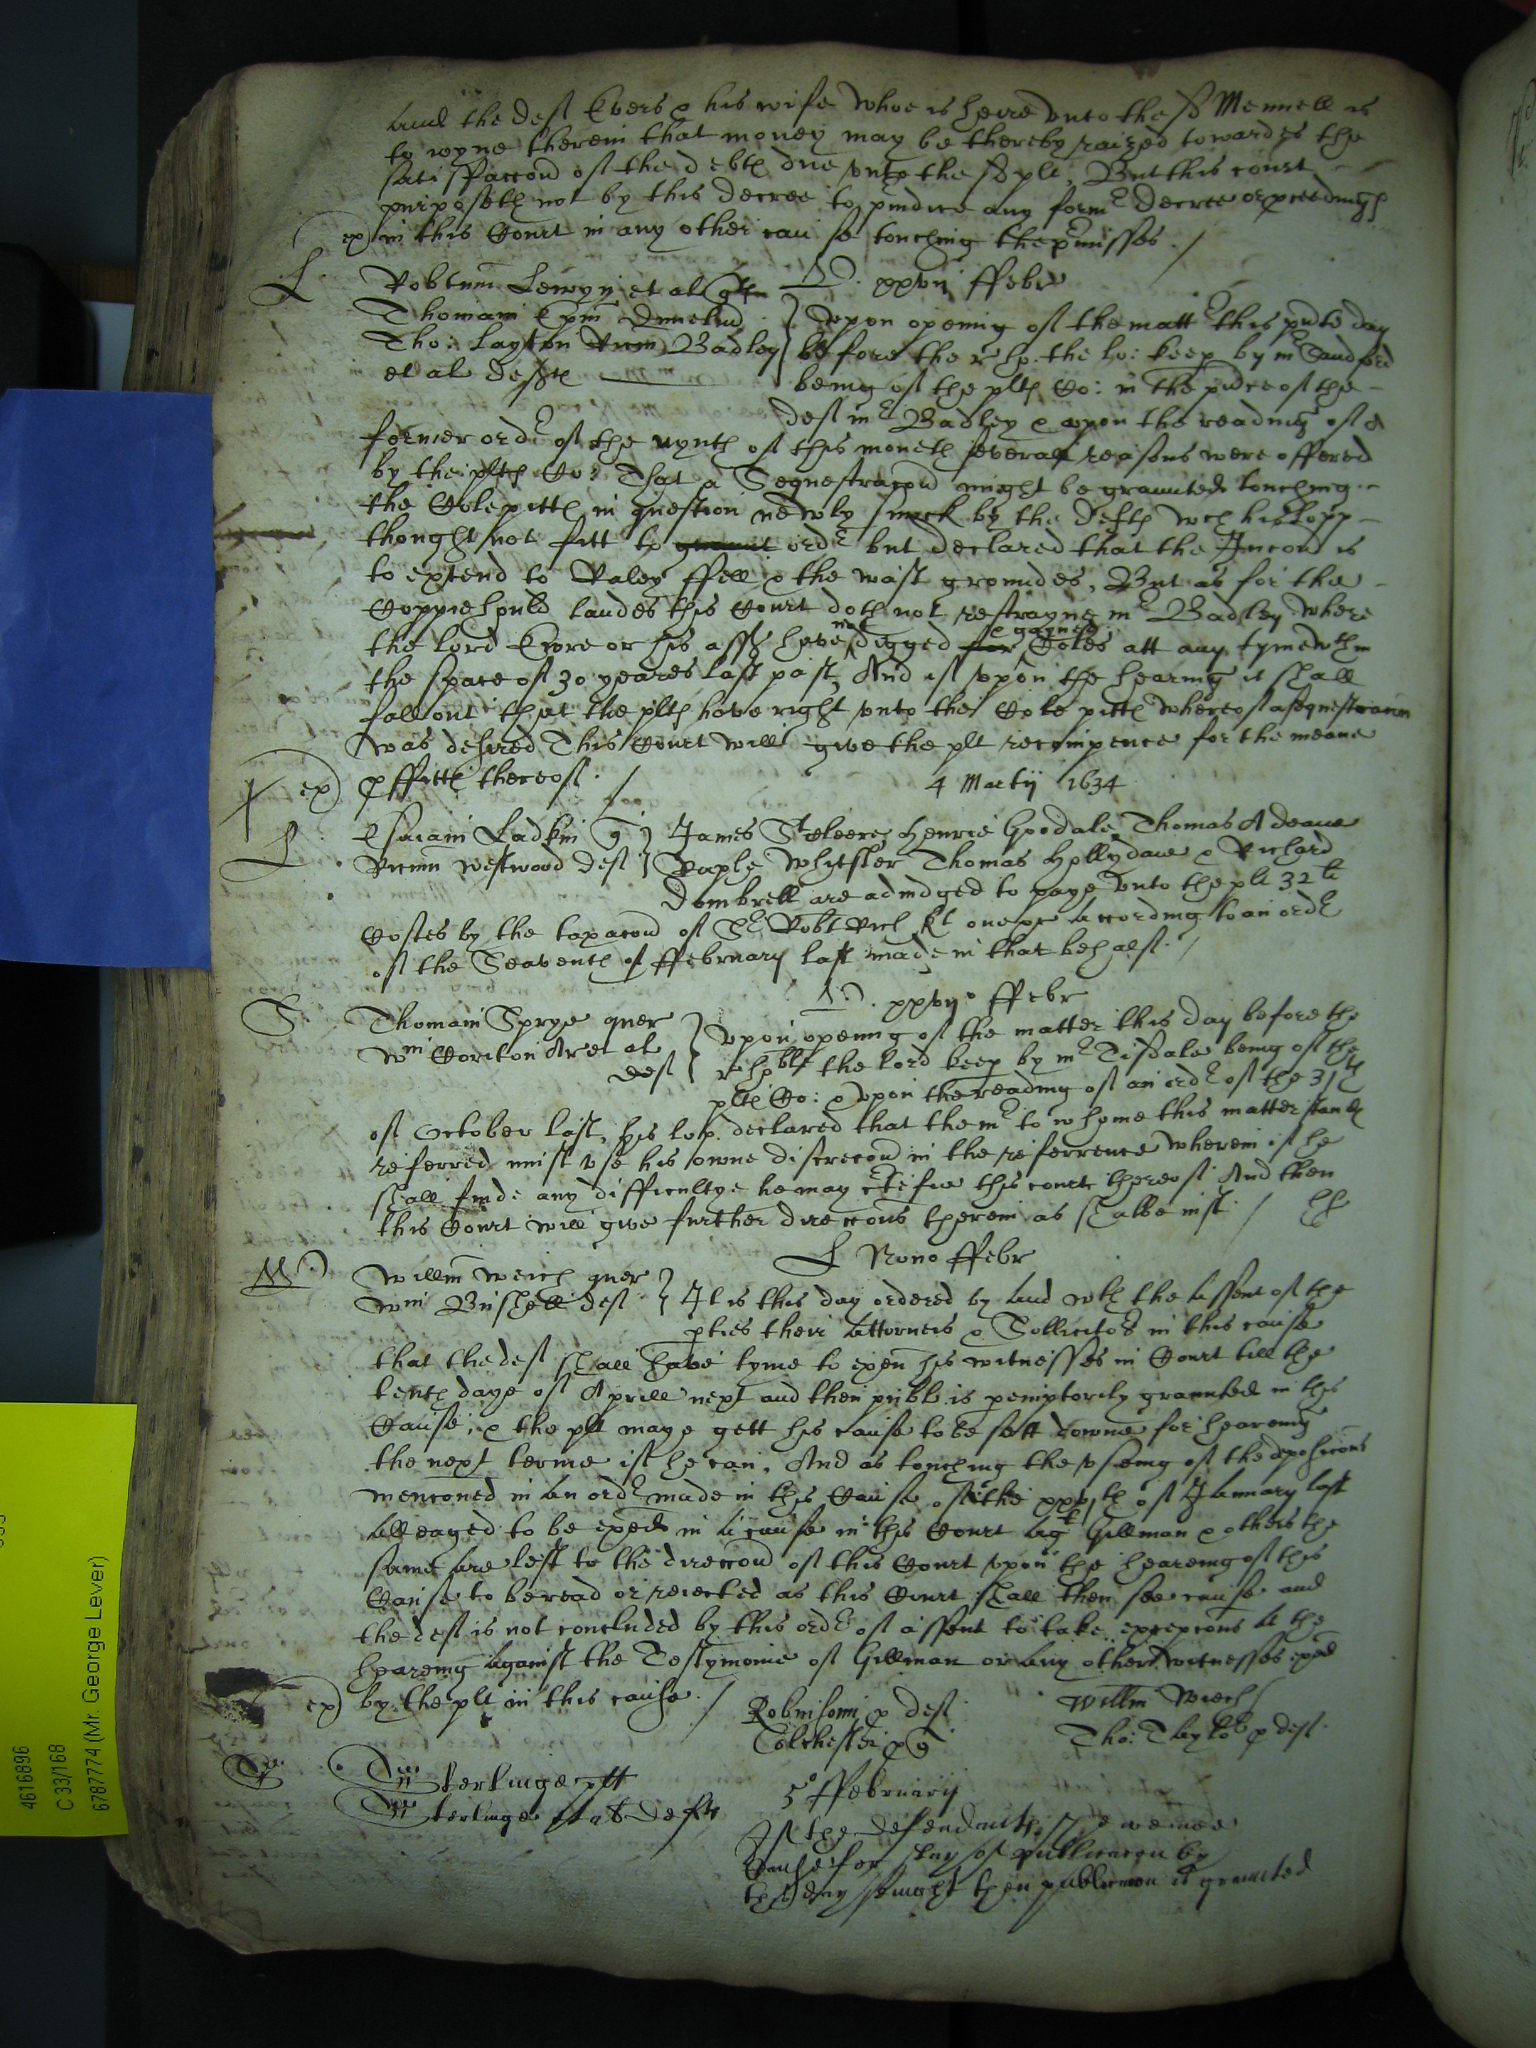 and the deft Evers & his wife whoe is heire unto the sd Mennell is
to ioyne therein that money may be thereby raized towardes the
satisfaccon of the debts due unto the sd plt, But this Court
purposeth not by this decree to piudice any formr decree or pceedings
ex in this Court in any other cause touching the pmisses /
L
Robtum Lewyn et al quer D. xxvii ffebr
Thomam Epm Dunelm } Upon opening of the mattr this pnte day
Tho: Layton Badley } before the r ho. the lo: keep by mr Sandford
et al Defts being of the plts Co: in the pnce of the
deft mr Badley & upon the reading of a
former ordr of the nynth of this moneth severall reasons were offered
by the plts Co: That a Sequestracon might be graunted touching
the Colepitts in question newly sunck by the Defts wch his lopp
thought not fitt to graunt ordr but declared that the Iniuncon is
to extend to Raley ffell & the wast groundes, But as for the
Coppiehould landes this Court doth not restrayne mr Badley where
the lord Evore or his assgs have not digged for & gayned Coles att any tyme wthin
the space of 30 yeares last past, And if upon the hearing it shall
fall out that the plts have right unto the Cole pitts whereof a sequestracon
was desired This Court will give the plt recompence for the meane
ex pffitts thereof. /
4 Martij 1634
L
Ladkin q } James Henrie Goodale Thomas Adeane
Ricum Westwood deft } Raphe Whistler Thomas Hollydaie & Richard
Dombrell are adiudged to paye unto the plt 32li
Costes by the taxacon of Sr Robt Rich kt one &c according to an ordr
of the Seaventh of ffebruary last made in that behalf. /
S
D. xxvijo ffebr
Thomam Sprye quer } Upon opening of the matter this day before the
Wm Coriton Ar et al deft } r hoble the lord keep by mr Tisdale being of the
plts Co: & upon the reading of an ordr of the 31th
of October last, his lop. declared that the mr to whome this matter stands
referred must use his owne discrecon in the referrence wherein if he
shall finde any difficultye he may ctifie this court thereof And then
this Court will give further direccons therein as shalbe iust. /
L Nono ffebr
W
Willm Weich quer }
Wm Bushell deft } It is this day ordered by and wth the assent of the
pties their Attorneis & Sollicitors in this cause
that the deft shall have tyme to exen his witnesses in Court till the
tenth daye of Aprill next and then publ. is pemptorily graunted in this
Cause, & the plt maye gett his cause to be sett downe for heareing
the next terme if he can, And as touching the useing of the deposicons
menconed in an ordr made in this Cause of the xxxth of January last
alleaged to be exed in a cause in this Court agt Gillman & others the
same are left to the direccon of this Court upon the heareing of this
Cause to be read or reiected as this Court shall then see cause and
the deft is not concluded by this ordr of assent to take excepcons at the
heareing against the Testymonie of Gillman or any other witnesses exed
ex by the plt in this cause. /
Robinson p deft Willm Wiech
Colchester p q Tho: Taylor p deft
St
Sterlinge plt 5o ffebruarij
Sterlinge et al defts If the defendants shewe noe
Cause for stay of publicacon by
this day sennight then publicacon is graunted
4616896
C 33/168
6787774 (Mr. George Lever)